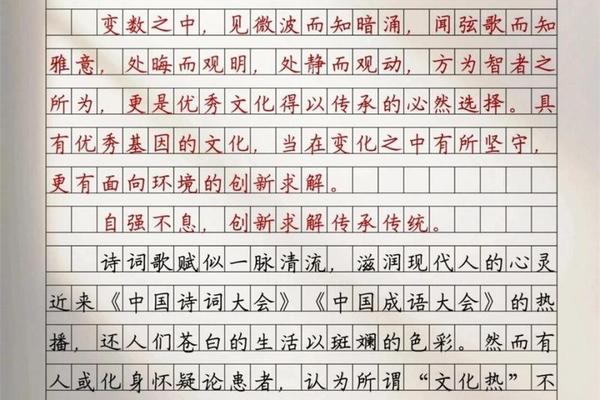 变数之中，见微波而知暗涌，闻弦歌而知
雅意，处晦而观明，处静而观动，方为智者之
所为，更是优秀文化得以传承的必然选择。具
有优秀基因的文化，当在变化之中有所坚守，
更有面向环境的创新求解。
自强不息，创新求解传承传统。
诗词歌赋似一脉清流，滋润现代人的心灵
近来《中国诗词大会》《中国成语大会》的热
播，还人们苍白的生活以斑斓的色彩。然而有
人或化身怀疑论患者，认为所谓“文化热”不